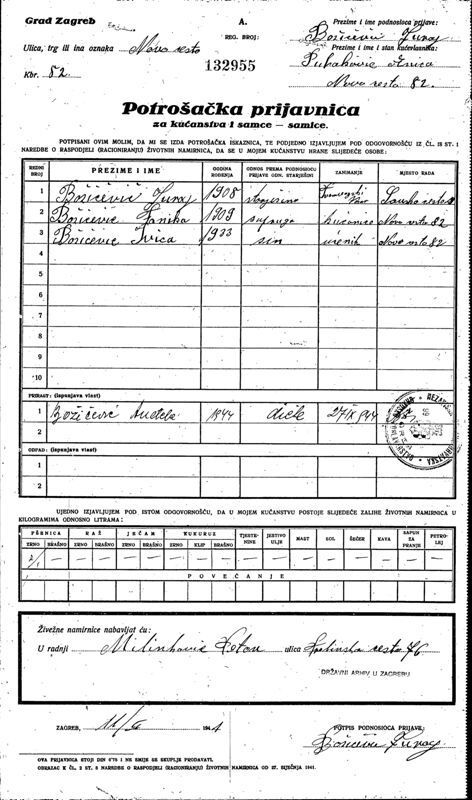 Grad Zagreb
A.
REG. BROJ:
132955
Prezime i ime podnosioca prijave:
Božičević Juraj
Ulica, trg ili ina oznaka Nova cesta
Prezime i ime i stan kućevlasnika:
Kbr. 82
Nova cesta 82.
Potrošačka prijavnica
za kućanstva i samce — samice.
POTPISANI OVIM MOLIM, DA MI SE IZDA POTROŠAČKA ISKAZNICA, TE PODJEDNO IZJAVLJUJEM POD ODGOVORNOŠĆU IZ ČL. 18 ST. 1
NAREDBE O RASPODJELI (RACIONIRANJU) ŽIVOTNIH NAMIRNICA, DA SE U MOJEM KUĆANSTVU HRANE SLIJEDEĆE OSOBE:
REDNI BROJ PREZIME I IME GODINA ROĐENJA ODNOS PREMA PODNOSIOCU PRIJAVE ODN. STARJEŠINI ZANIMANJE MJESTO RADA
1 Božičević Juraj 1908
2 Božičević 1909 supruga kućanica Nova cesta 82
3 Božičević Ivica 1933 sin učenik Nova cesta 82
4
5
6
7
8
9
10
PRIRAST: (ispunjava vlast)
1 Božičević 1944 dijete 27/IX 944
2
OTPAD: (ispunjava vlast)
1
2
UJEDNO IZJAVLJUJEM POD ISTOM ODGOVORNOŠĆU, DA U MOJEM KUĆANSTVU POSTOJE SLIJEDEĆE ZALIHE ŽIVOTNIH NAMIRNICA U
KILOGRAMIMA ODNOSNO LITRAMA:
PŠENICA RAŽ JEČAM KUKURUZ TJESTENINE JESTIVO ULJE MAST SOL ŠEĆER KAVA SAPUN ZA PRANJE PETROLEJ
ZRNO BRAŠNO ZRNO BRAŠNO ZRNO BRAŠNO ZRNO KLIP BRAŠNO
POVEĆANJE
Živežne namirnice nabavljat ću:
U radnji ulica cesta 76
DRŽAVNI ARHIV U ZAGREBU
ZAGREB, 194
POTPIS PODNOSIOCA PRIJAVE:
Božičević Juraj
OVA PRIJAVNICA STOJI DIN 0'75 I NE SMIJE SE SKUPLJE PRODAVATI.
OBRAZAC K ČL. 2 ST. 5 NAREDBE O RASPODJELI (RACIONIRANJU) ŽIVOTNIH NAMIRNICA OD 27. SIJEČNJA 1941.